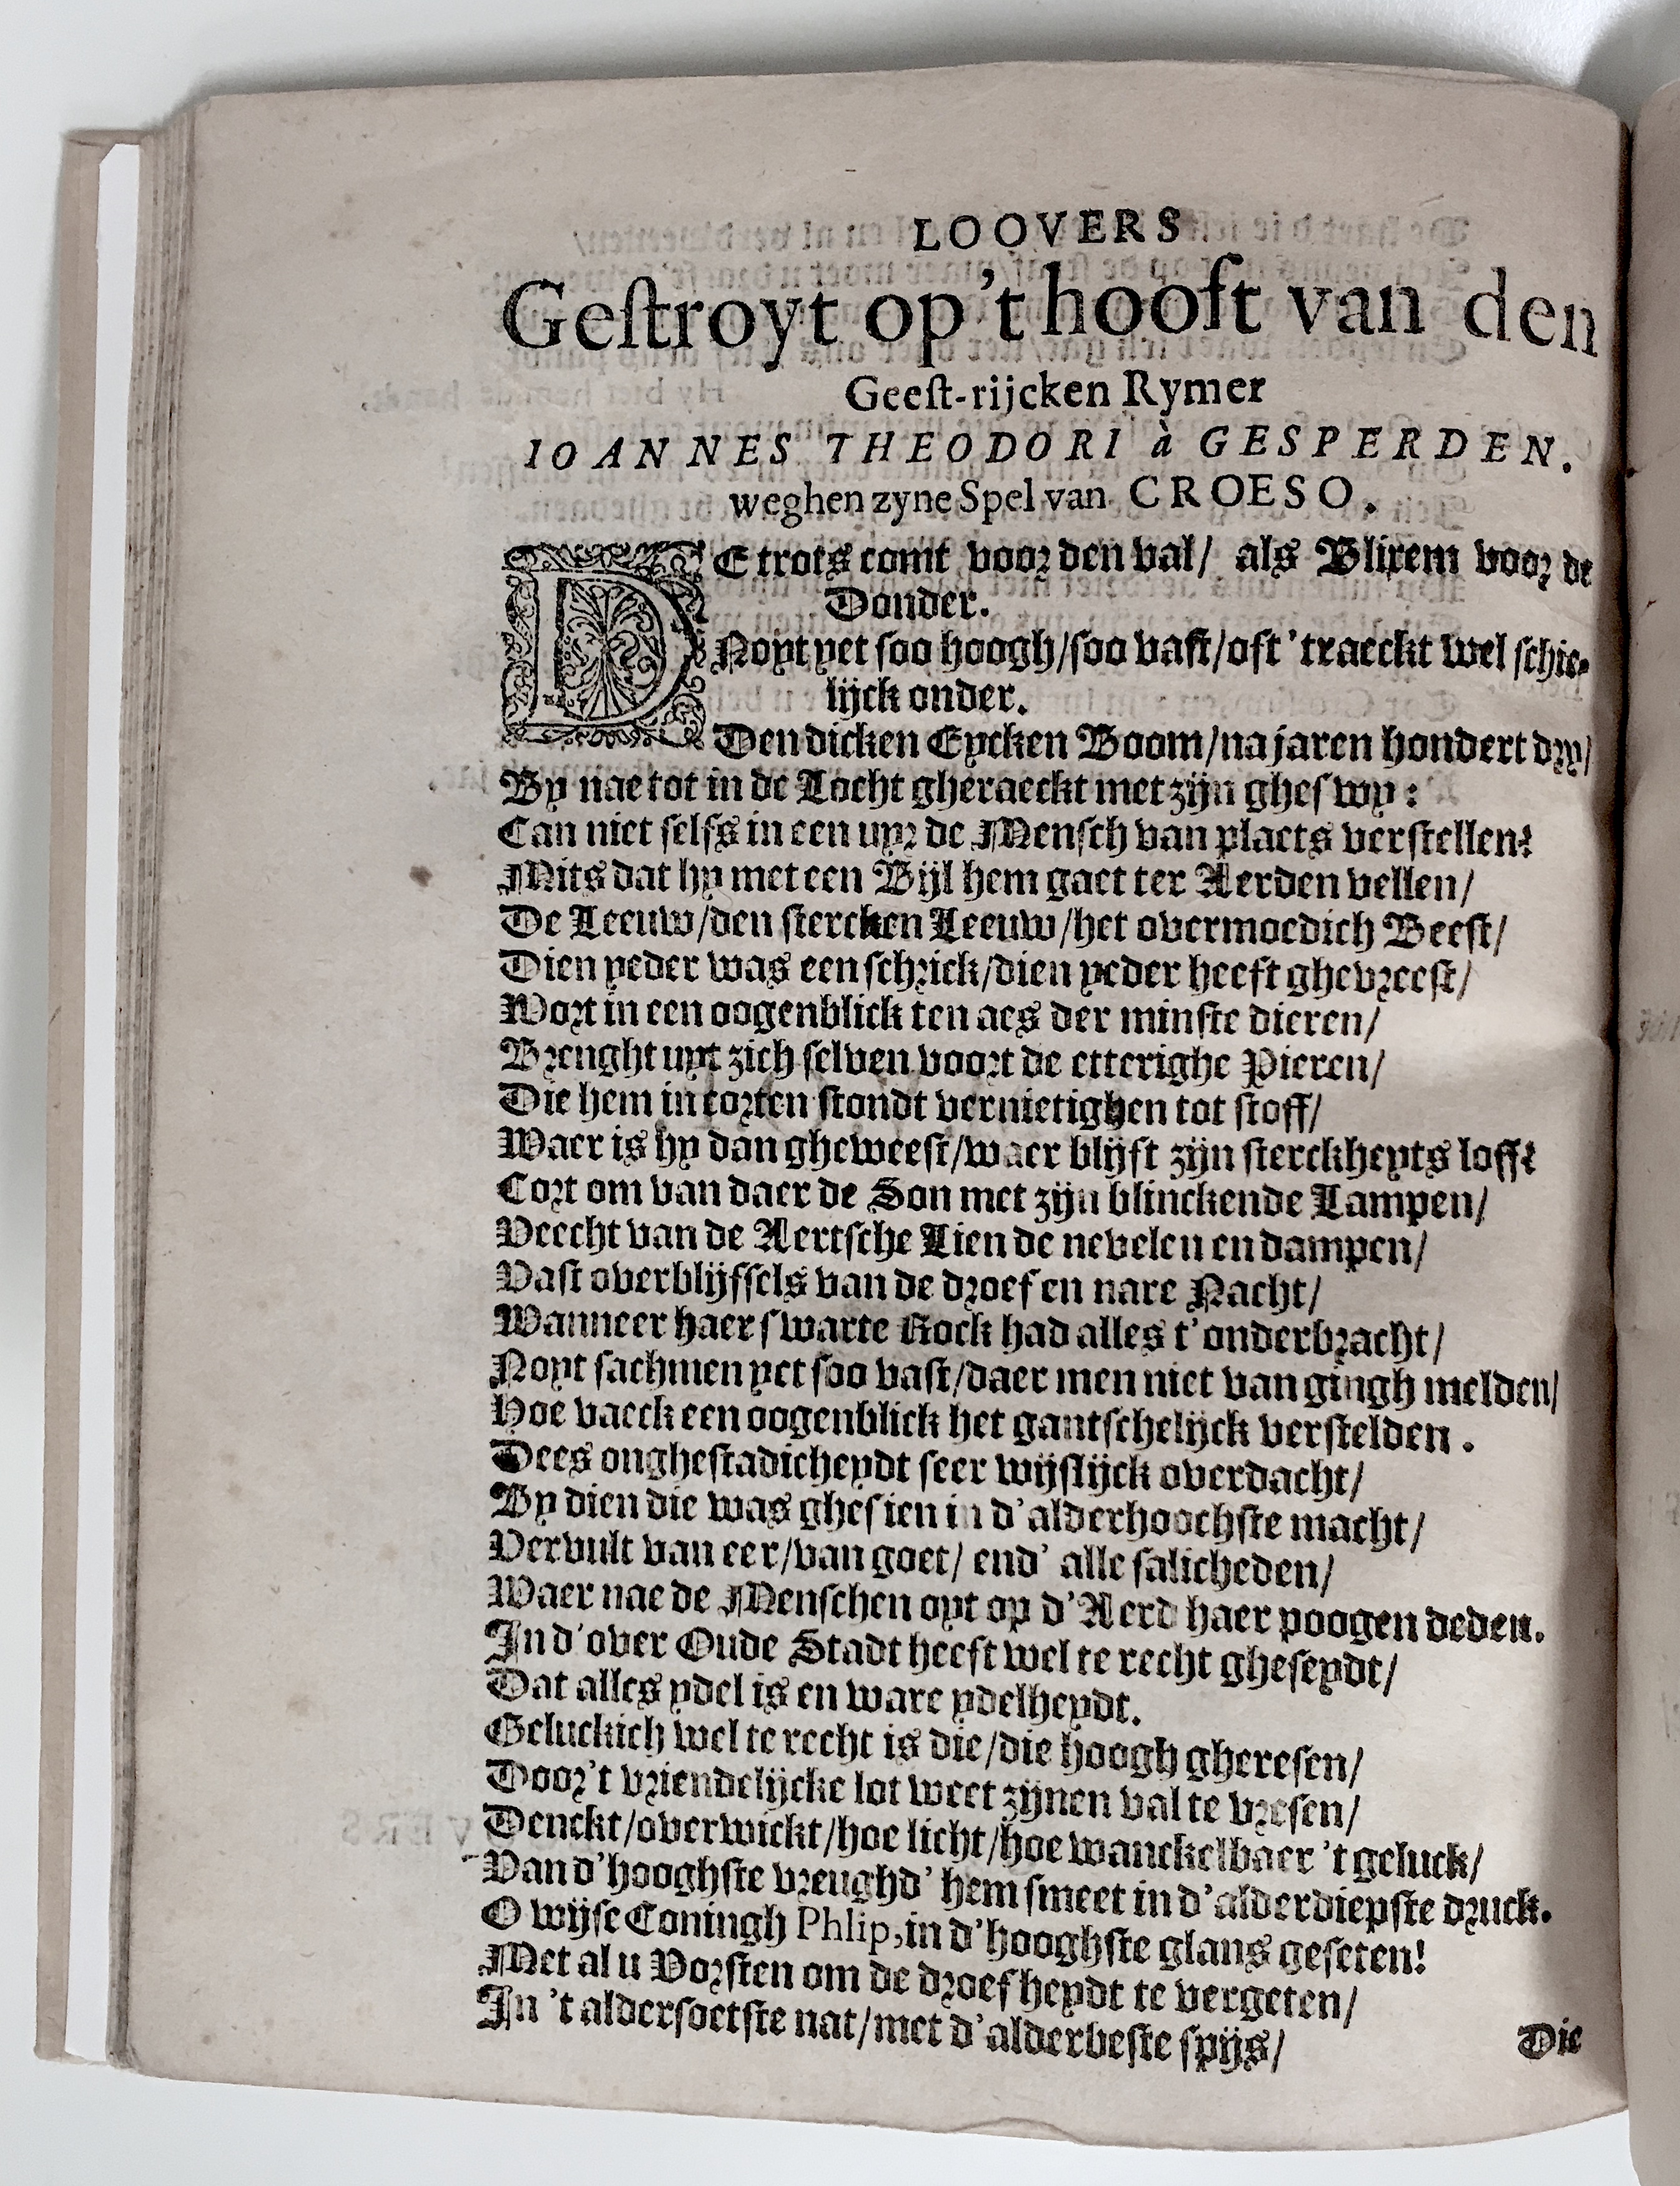 LOOVERS
Geſtroyt op't hooft van den
Geeſt-rijcken Rymer
IOANNES THEODORI à GESPERDEN.
weghen zyne Spel van CROESO.
DE trots comt voor den val/ als Blixem voor de
Donder.
Noyt yet ſoo hoogh/ſoo vaſt/oft 'traeckt wel ſchie-
lijck onder.
Den dicken Eycken Boom/na jaren hondert dry/
By nae tot in de Locht gheraeckt met zijn gheſwy:
Can niet ſelfs in een uyr de Menſch van plaets verſtellen?
Mits dat hy met een Bijl hem gaet ter Aerden vellen/
De Leeuw/den ſtercken Leeuw/het overmoedich Beeſt/
Dien yeder was een ſchrick/dien yeder heeft ghevreeſt/
Wort in een oogenblick ten aes der minſte dieren/
Brenght uyt zich ſelven voort de etterighe Pieren/
Die hem in corten ſtondt vernietighen tot ſtoff/
Waer is hy dan gheweeſt/waer blijft zijn ſterckheyts loff?
Cort om van daer de Son met zijn blinckende Lampen/
Veecht van de Aertſche Lien de nevelen en dampen/
Vaſt overblijfſels van de droef en nare Nacht/
Wanneer haer ſwarte Rock had alles t'onderbracht/
Noyt ſachmen yet ſoo vaſt/daer men niet van gingh melden/
Hoe vaeck een oogenblick het gantſchelijck verſtelden.
Dees ongheſtadicheydt ſeer wijſlijck overdacht/
By dien die was gheſien in d'alderhoochſte macht/
Vervult van eer/van goet/ end' alle ſalicheden/
Waer nae de Menſchen oyt op d'Aerd haer poogen deden.
In d'over Oude Stadt heeft wel te recht gheſeydt/
Dat alles ydel is en ware ydelheydt.
Geluckich wel te recht is die/die hoogh ghereſen/
Door't vriendelijcke lot weet zijnen val te vreſen/
Denckt/overwickt/hoe licht/hoe wanckelbaer 't geluck/
Van d'hooghſte vreughd' hem ſmeet in d'alderdiepſte druck.
O wijſe Coningh Phlip, in d'hooghſte glans geſeten!
Met al u Vorſten om de droefheydt te vergeten/
In 't alderſoetſte nat/met d'alderbeſte ſpijs/
Die